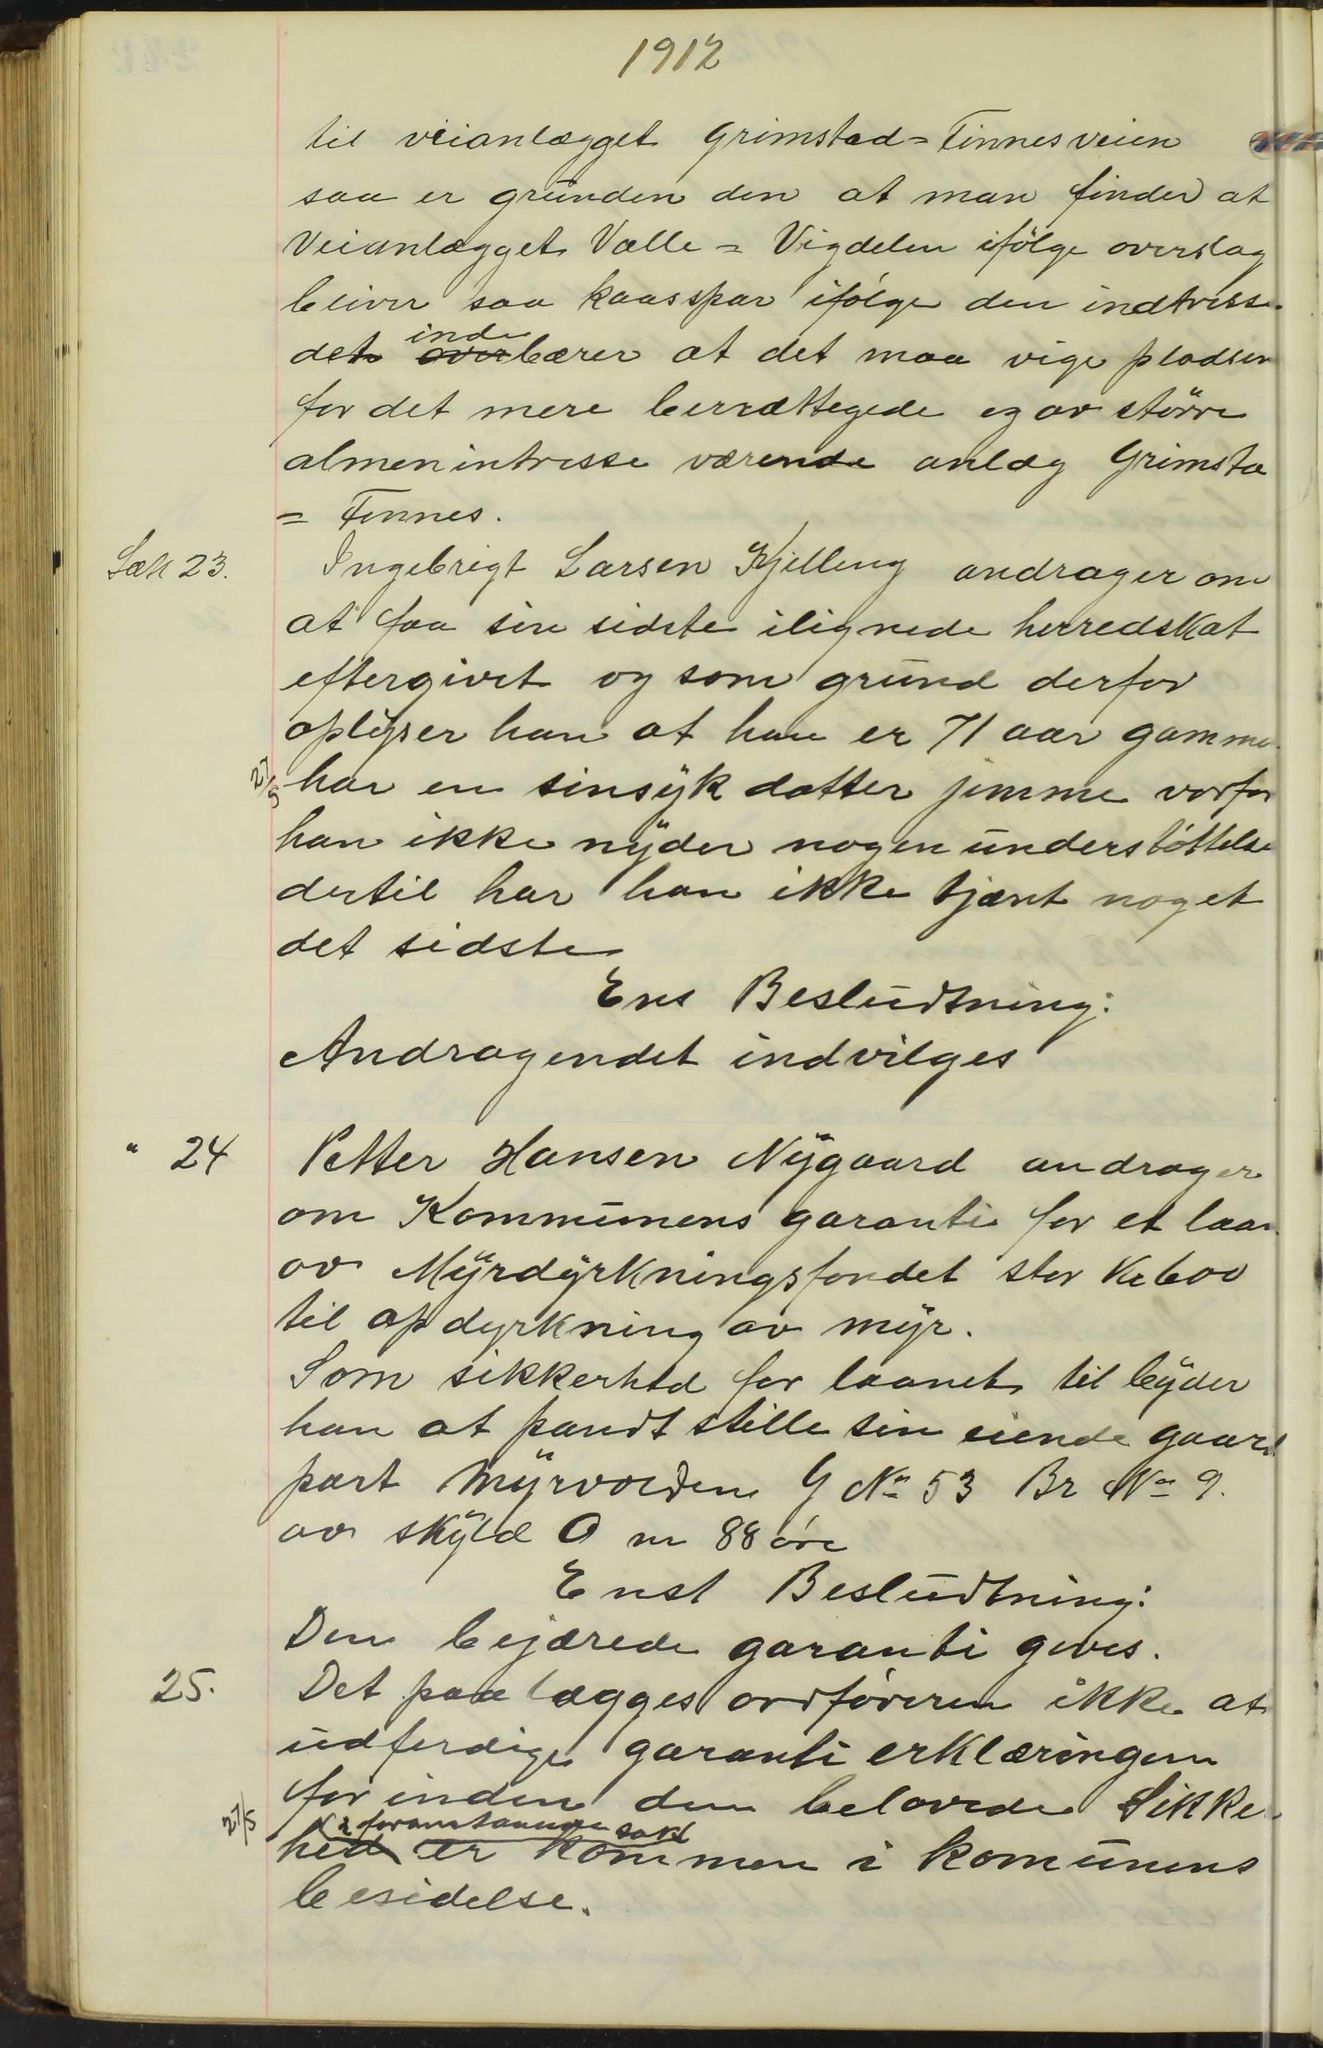 1912
til veianlægget Grimstad = Finnesveien
saa er grunden den at man finder at
Veianlægget Valle = Vigdelen ifölge overslag
bliver saa kaasspar ifølge den intresse
det inde overbærer at det maa vige pladsen
for det mere berrættegede og av större
almenintresse værende anlæg Grimsta
= Finnes.
Sak 23. Ingebrigt Larsen Kjelling andrager om
at faa sin sidste ilignede herredskat
eftergivet og som grund derfor
oplyser han at han er 71 aar gamme
27/5 har en sinsyk datter jemme vorfor
han ikke nyder nogen understøttelse
dertil har han ikke tjænt noget
det sidste
Ens Besludtning:
Andragendet indvilges
" 24 Petter Hansen Nygaard andrager
om Kommunens garanti for et laan
av Myrdyrkningsfondet stor Kr 600
til opdyrkning av myr.
Som sikkerhed for laanet til byder
han at pandt stille sin eiende gaard
part Myrvolden G No 53 Br No 9.
av skyld 0 m 88 öre
Enst Besludtning:
Den bejærede garanti gives.
25. Det paalægges ordføreren ikke at
udferdige garanti erklæringen
for inden den belovede Sikke
27/5 i foranstaaende sak
hed er kommen i komunens
besidelse.